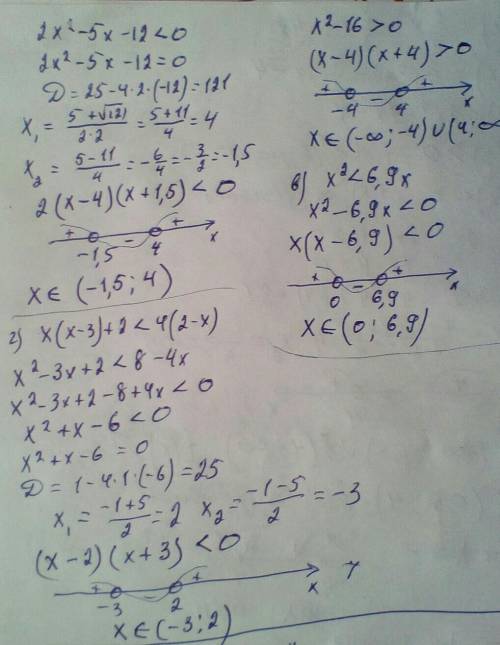 2x²-5x-12<0
2x²-5x-12=0
D=25-4·2·(-12)=121
x₁=(5+√121)/(2·2)=(5+11)/4=4
x₂=(5-11)/4=-6/4=-3/2=-1,5
2(x-4)(x+1,5)<0
+ - +
-1,5 4 x
x∈(-1,5;4)
г) x(x-3)+2<4(2-x)
x²-3x+2<8-4x
x²-3x+2-8+4x<0
x²+x-6<0
x²+x-6=0
D=1-4·1·(-6)=25
x₁=(-1+5)/2=2 x₂=(-1-5)/2=-3
(x-2)(x+3)<0
+ - +
-3 2 x
x∈(-3;2)
x²-16>0
(x-4)(x+4)>0
+ - +
-4 4 x
x∈(-∞;-4)∪(4;∞
в) x²<6,9x
x²-6,9x<0
x(x-6,9)<0
+ - +
0 6,9 x
x∈(0;6,9)